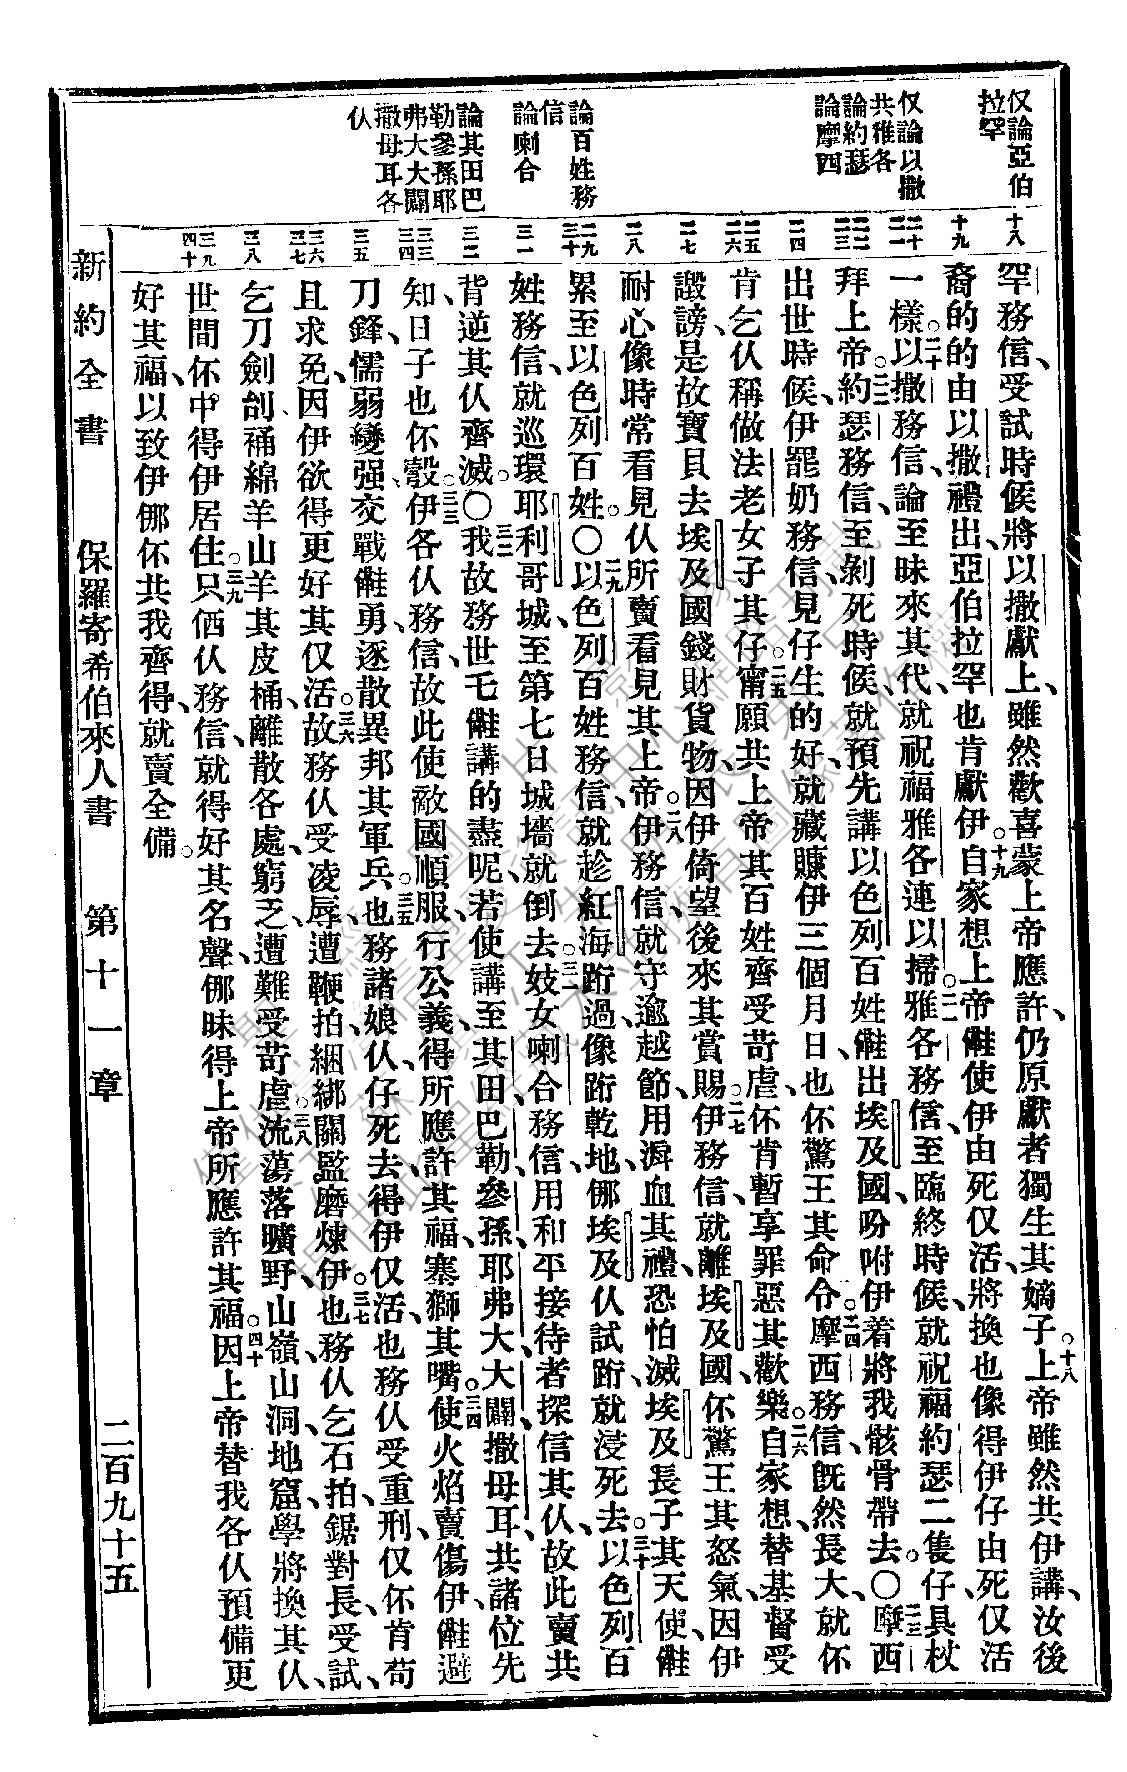 仅論亞伯
拉罕
仅論以撒
共雅各
論約瑟
論摩西
論百姓務
信
論喇合
論其田巴
勒參孫耶
弗大大闢
撒母耳各
仈
十八
十九
二十
二一
二二
二三
二四
二五
二六
二七
二八
二九
三十
三一
三二
三三
三四
三五
三六
三七
三八
三九
四十
罕務信、受試時候、將以撒獻上、雖然歡喜蒙上帝應許、仍原獻者獨生其嫡子。十八上帝雖然共伊講、汝後
裔的的由以撒禮出、亞伯拉罕也肯獻伊。十九自家想上帝𠀾使伊由死仅活、將換也像得伊仔由死仅活
一樣。二十以撒務信、論至昧來其代、就祝福雅各連以掃。二一雅各務信、至臨終時候、就祝福約瑟二隻仔、具杖
拜上帝。二二約瑟務信、至剝死時候、就預先講以色列百姓𠀾出埃及國、吩咐伊着將我骸骨帶去。○二三摩西
出世時候、伊罷奶務信、見仔生的好、就藏賺伊三個月日、也伓驚王其命令。二四摩西務信、旣然長大、就伓
肯乞仈稱做法老女子其仔。二五甯願共上帝其百姓齊受苛虐、伓肯暫享罪惡其歡樂。二六自家想、替基督受
譭謗、是故寶貝去埃及國錢財貨物、因伊倚望後來其賞賜。二七伊務信、就離埃及國、伓驚王其怒氣、因伊
耐心像時常看見仈所賣看見其上帝。二八伊務信、就守逾越節、用濺血其禮、恐怕滅埃及長子其天使、𠀾
累至以色列百姓。○二九以色列百姓務信、就趁紅海跨過、像跨乾地、㑚埃及仈試跨、就浸死去。三十以色列百
姓務信、就巡環耶利哥城、至第七日城墻就倒去。三一妓女喇合務信、用和平接待者探信其仈、故此賣共
背逆其仈齊滅。○三二我故務世乇𠀾講的盡呢、若使講至其田巴勒、參孫、耶弗大、大闢、撒母耳、共諸位先
知、日子也伓彀。三三伊各仈務信、故此使敵國順服、行公義、得所應許其福、塞獅其嘴。三四使火焰賣傷伊、𠀾避
刀鋒、懦弱變强、交戰𠀾勇、逐散異邦其軍兵。三五也務諸娘仈仔死去、得伊仅活、也務仈受重刑、仅伓肯苟
且求免、因伊欲得更好其仅活。三六故務仈受凌辱、遭鞭拍、綑綁、關監、磨煉伊。三七也務仈乞石拍、鋸對長、受試、
乞刀劍刣、補綿羊山羊其皮桶、離散各處、窮乏、遭難、受苛虐。三八流蕩落曠野、山嶺、山洞、地窟、學將換其仈、
世間伓中得伊居住。三九只佰仈務信、就得好其名聲、㑚昧得上帝所應許其福。四十因上帝替我各仈預備更
好其福、以致伊㑚伓共我齊得、就賣全備。
新約全書　保羅寄希伯來人書　第十一章　二百九十五